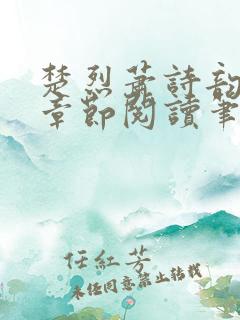 楚烈萧詩韵
章節閱讀筆
任紅芳
未經同意禁止轉載